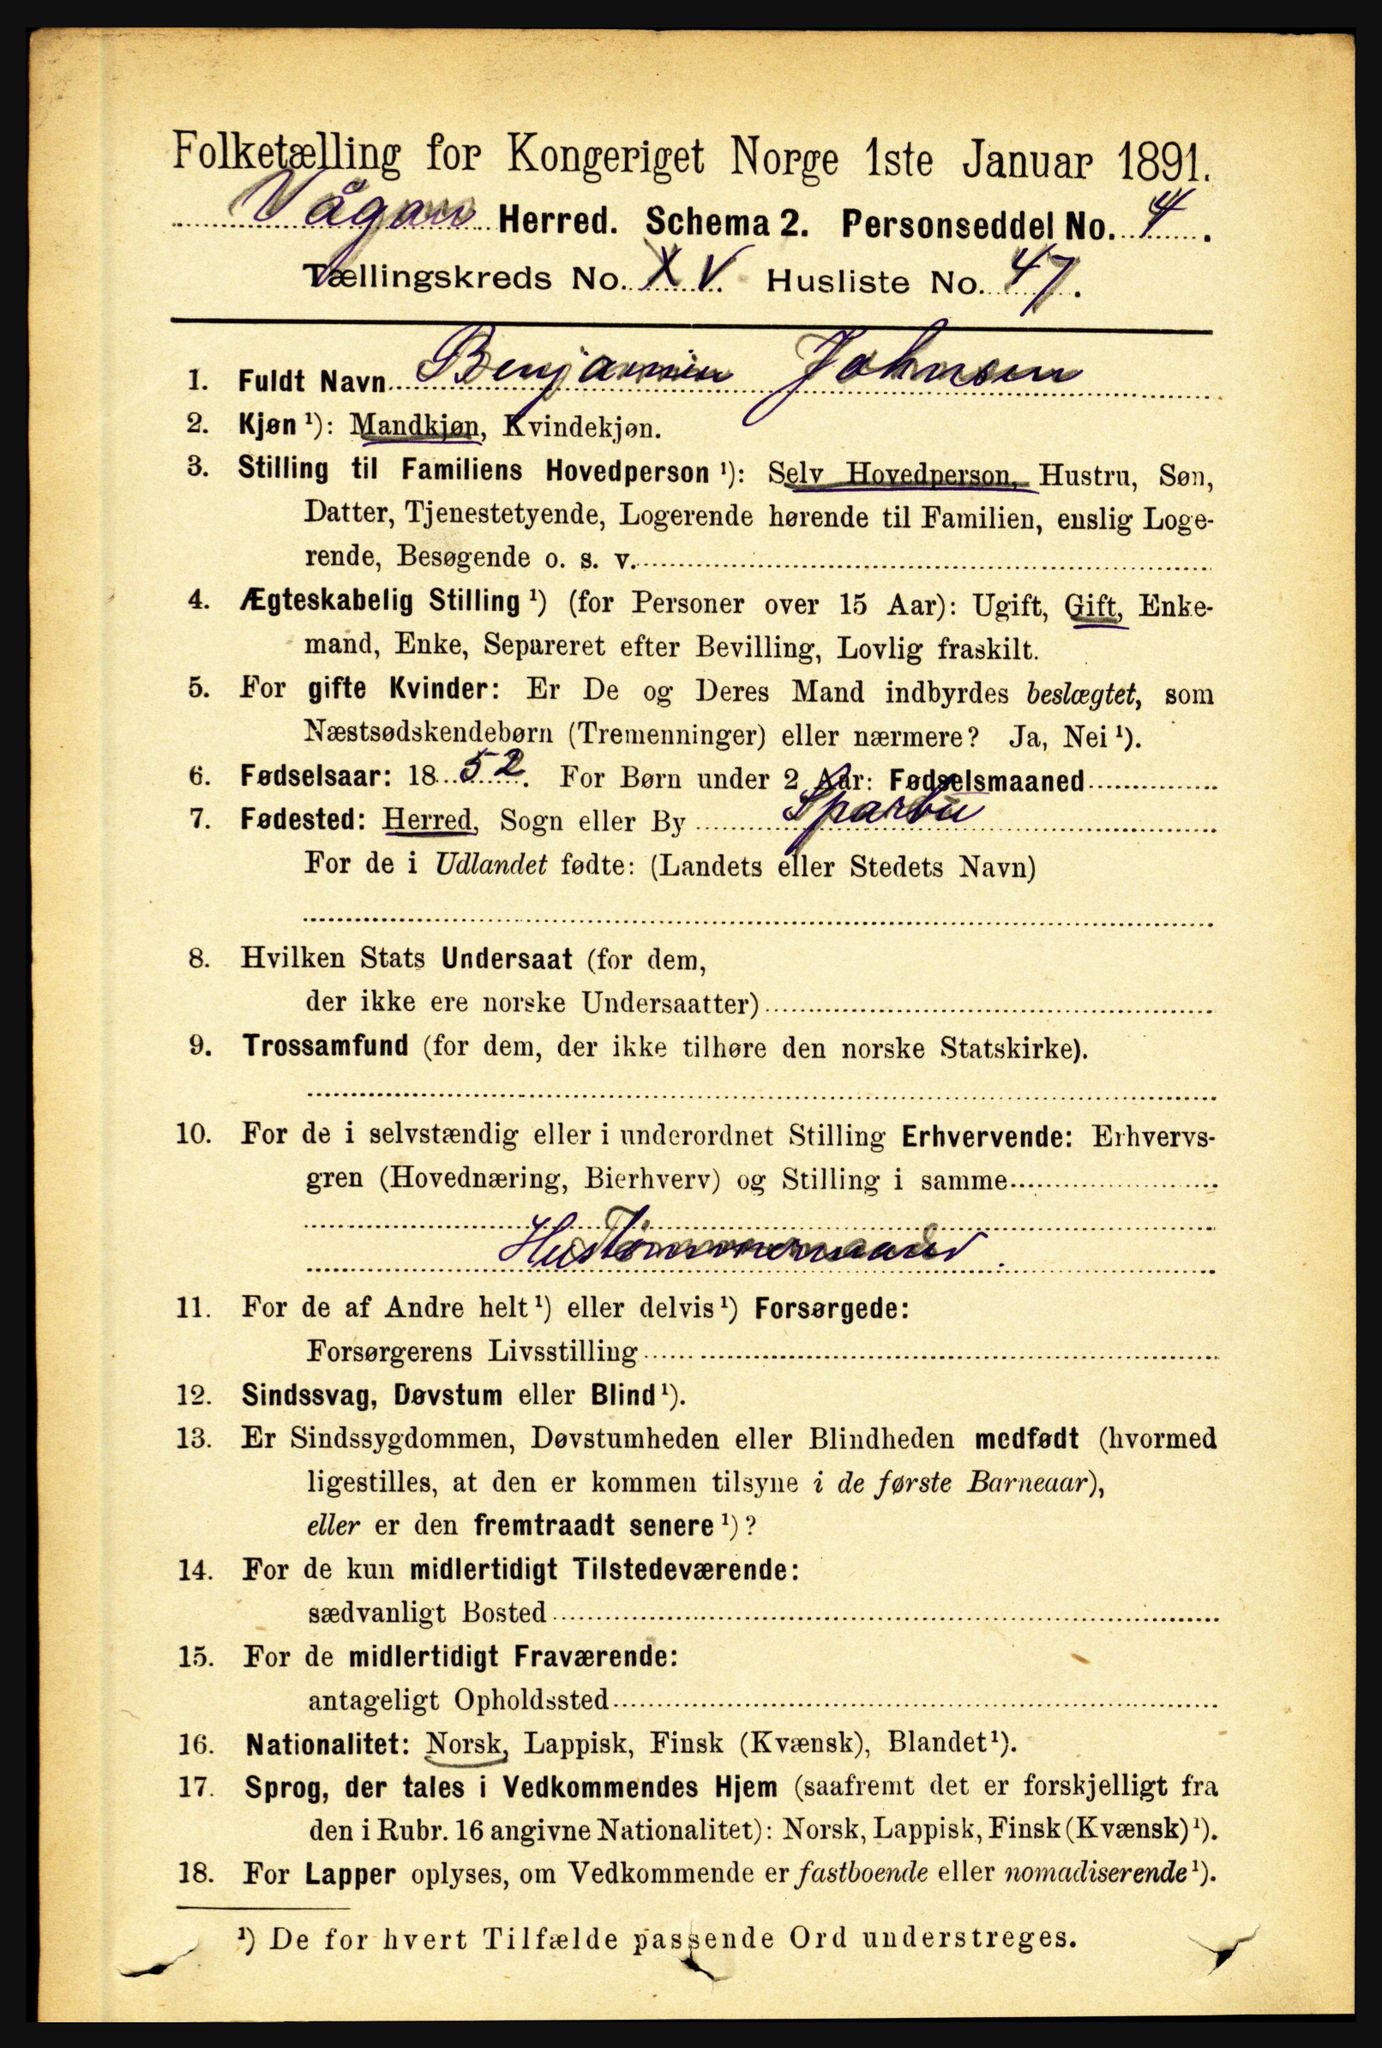 Folketælling for Kongeriget Norge 1ste Januar 1891.
Vågan Herred. Schema 2. Personseddel No. 4.
Tællingskreds No. XV Husliste No. 47.
1. Fuldt Navn Benjamin Johnsen
2. Kjøn ¹): Mandkjøn, Kvindekjøn.
3. Stilling til Familiens Hovedperson ¹): Selv Hovedperson, Hustru, Søn,
Datter, Tjenestetyende, Logerende hørende til Familien, enslig Loge-
rende, Besøgende o. s. v.
4. Ægteskabelig Stilling ¹) (for Personer over 15 Aar): Ugift, Gift, Enke-
mand, Enke, Separeret efter Bevilling, Lovlig fraskilt.
5. For gifte Kvinder: Er De og Deres Mand indbyrdes beslægtet, som
Næstsødskendebørn (Tremenninger) eller nærmere? Ja, Nei ¹).
6. Fødselsaar: 1852. For Børn under 2 Aar: Fødselsmaaned
7. Fødested: Herred, Sogn eller By Sparbu
For de i Udlandet fødte: (Landets eller Stedets Navn)
8. Hvilken Stats Undersaat (for dem,
der ikke ere norske Undersaatter)
9. Trossamfund (for dem, der ikke tilhøre den norske Statskirke).
10. For de i selvstændig eller i underordnet Stilling Erhvervende: Erhvervs-
gren (Hovednæring, Bierhverv) og Stilling i samme
Hustømmermand.
11. For de af Andre helt ¹) eller delvis ¹) Forsørgede:
Forsørgerens Livsstilling
12. Sindssvag, Døvstum eller Blind ¹).
13. Er Sindssygdommen, Døvstumheden eller Blindheden medfødt (hvormed
ligestilles, at den er kommen tilsyne i de første Barneaar),
eller er den fremtraadt senere ¹)?
14. For de kun midlertidigt Tilstedeværende:
sædvanligt Bosted
15. For de midlertidigt Fraværende:
antageligt Opholdssted
16. Nationalitet: Norsk, Lappisk, Finsk (Kvænsk), Blandet ¹).
17. Sprog, der tales i Vedkommendes Hjem (saafremt det er forskjelligt fra
den i Rubr. 16 angivne Nationalitet): Norsk, Lappisk, Finsk (Kvænsk) ¹).
18. For Lapper oplyses, om Vedkommende er fastboende eller nomadiserende ¹).
¹) De for hvert Tilfælde passende Ord understreges.